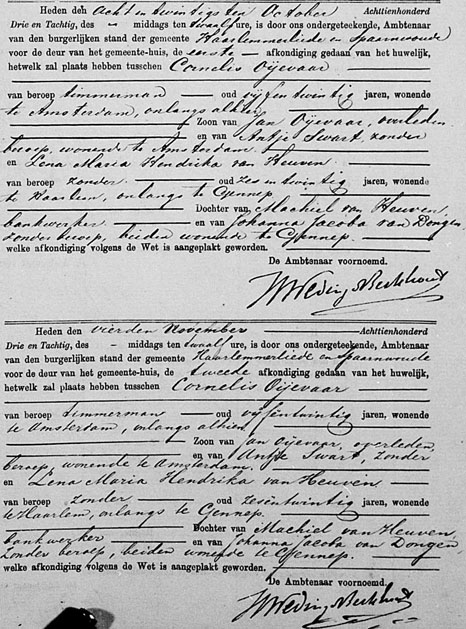 Heden den Acht en twintigsten October Achttienhonderd
Drie en Tachtig, des - middags ten twaalf ure, is door ons ondergeteekende, Ambtenaar
van den burgerlijken stand der gemeente Haarlemmerliede en Spaarnwoude
voor de deur van het gemeente-huis, de eerste afkondiging gedaan van het huwelijk,
hetwelk zal plaats hebben tusschen Cornelis Oijevaar
van beroep timmerman oud vijfentwintig jaren, wonende
te Amsterdam, onlangs alhier
Zoon van Jan Oijevaar, overleden
en van Antje Swart, zonder
beroep, wonende te Amsterdam
en Lena Maria Hendrika van Heuven
van beroep zonder oud zesentwintig jaren, wonende
te Haarlem, onlangs te Gennep
Dochter van Machiel van Heuven,
bankwerker en van Johanna Jacoba van Dongen,
zonder beroep, beiden wonende te Gennep.
welke afkondiging volgens de Wet is aangeplakt geworden.
De Ambtenaar voornoemd.
Heden den vierden November Achttienhonderd
Drie en Tachtig, des - middags ten twaalf ure, is door ons ondergeteekende, Ambtenaar
van den burgerlijken stand der gemeente Haarlemmerliede en Spaarnwoude
voor de deur van het gemeente-huis, de tweede afkondiging gedaan van het huwelijk,
hetwelk zal plaats hebben tusschen Cornelis Oijevaar
van beroep timmerman oud vijfentwintig jaren, wonende
te Amsterdam, onlangs alhier
Zoon van Jan Oijevaar, overleden,
en van Antje Swart, zonder
beroep, wonende te Amsterdam.
en Lena Maria Hendrika van Heuven
van beroep zonder oud zesentwintig jaren, wonende
te Haarlem, onlangs te Gennep.
Dochter van Machiel van Heuven,
bankwerker en van Johanna Jacoba van Dongen
zonder beroep, beiden wonende te Gennep.
welke afkondiging volgens de Wet is aangeplakt geworden.
De Ambtenaar voornoemd.